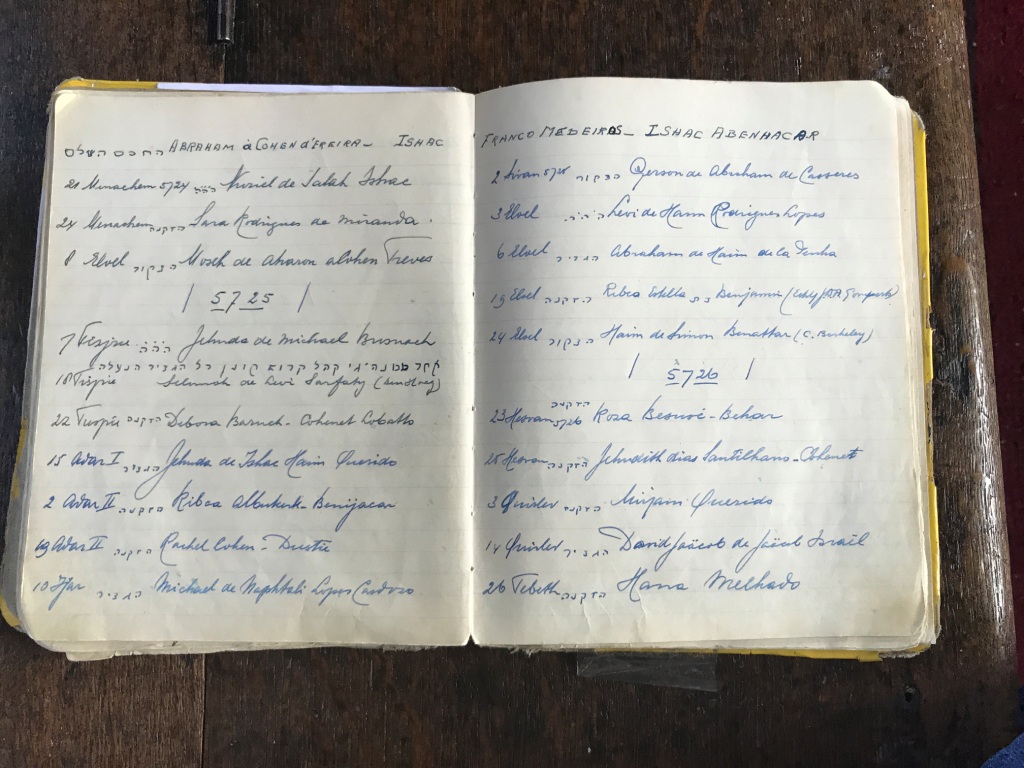 החכם השלם ABRAHAM à COHEN d'EREIRA — ISHAC
21 Menachem 5724 de Talah Ishac
24 Menachem הזקנה Sara Rodrigues de Miranda.
8 Elvel הבקור Mosch de Aharon alohen Treves
5725
7 Tesjrie ההה Jehuda de Michael Busnach
18 Tisprie Selomoh de Levi Sarfaty
22 הזקנה Debora Baruch - Cohenet Lobatto
15 Adar I הגביר Jehuda de Ishac Haim Querido
2 Adar II הזקנה Ribca Albukerk - Benijacar
19 Adar II הזקנה Rachel Cohen -
10 Ijar הגביר Michael de Naphtali Lopes Cardozo
FRANCO MEDEIROS — ISHAC ABENHACAR
2 Sivan 5725 הבקור Gerson de Abraham de Casseres
3 Elvel ההה Levi de Haim Rodrigues Lopes
6 Elvel הגביר Abraham de Haim de la Penha
19 Elvel הזקנה Ribca Estella בת Benjamin
24 Elvel הבקור Haim de Simon Benattar (C. Berkeley)
5726
23 Hesvan 5726 הזקנה Roza Besuré - Behar
25 Hesvan הזקנה Jehudith dias Santilhano - Cohenet
3 Quislev הזקנה Mirjam Querido
14 Quislev הגביר David Jaäcob de Jaäcob Israël
26 Tebeth הזקנה Hana Melhado